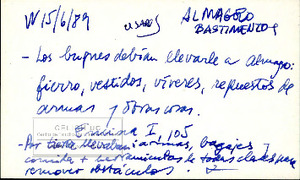 W 15/6/89
ALMAGRO
BASTIMENTOS
- Los buques debían llevarle a Almagro:
fierro, vestidos, víveres, repuestos de
armas y otras cosas.
I, 105
- Por tierra llevaban: armas, bagajes y
comida y herramientas de todas clases para
remover obstáculos.